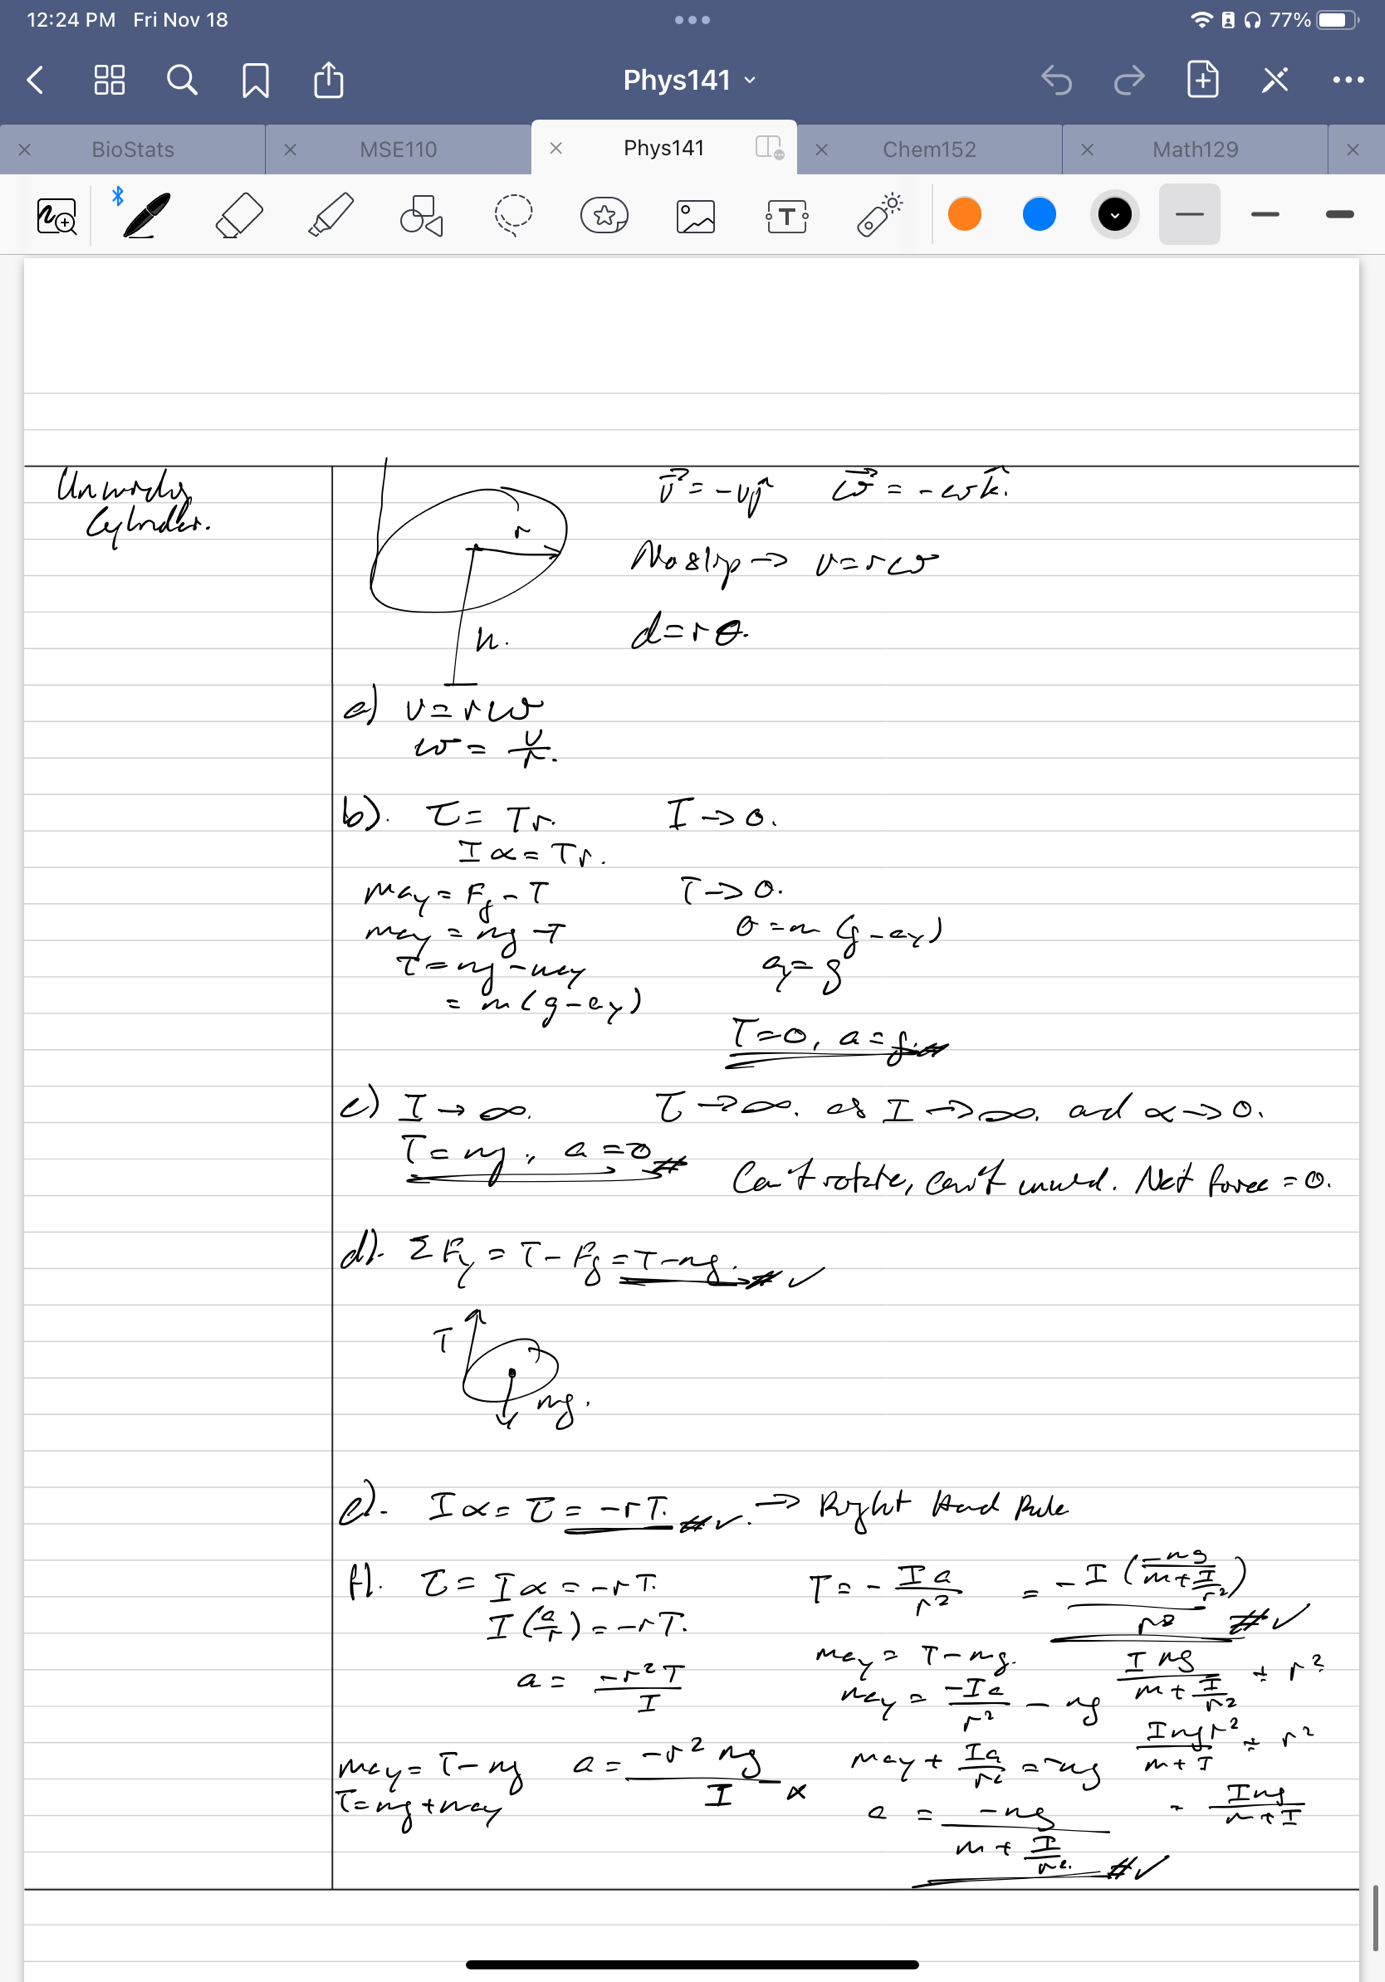 12:24 PM Fri Nov 18
77%
Phys141
BioStats
MSE110
Phys141
Chem152
Math129
Unwinding
Cylinder.
r
h.
v⃗ = -vĵ ω⃗ = -ωk̂.
No slip → v = rω
d = rθ.
a) v = rω
ω = v/r.
b). τ = Tr. I → 0.
Iα = Tr.
may = Fg - T T → 0.
may = mg - T 0 = m(g - ay)
T = mg - may ay = g
= m(g - ay)
T = 0, a = g. #
c) I → ∞. τ → ∞. as I → ∞, and α → 0.
T = mg, a = 0 #
Can't rotate, can't unwind. Net force = 0.
d). ΣFy = T - Fg = T - mg. # ✓
T
mg.
e). Iα = τ = -rT. # ✓. → Right Hand Rule
f). τ = Iα = -rT.
I(a/r) = -rT.
a = -r²T/I
may = T - mg a = -r²mg/I ×
T = mg + may
T = -Ia/r² = -I(-mg/(m + I/r²))/r² # ✓
may = T - mg.
may = -Ia/r² - mg
may + Ia/r² = -mg
a = -mg/(m + I/r²) # ✓
Img/(m + I/r²) ÷ r²
Imgr²/(m + I) ÷ r²
= Img/(m + I)